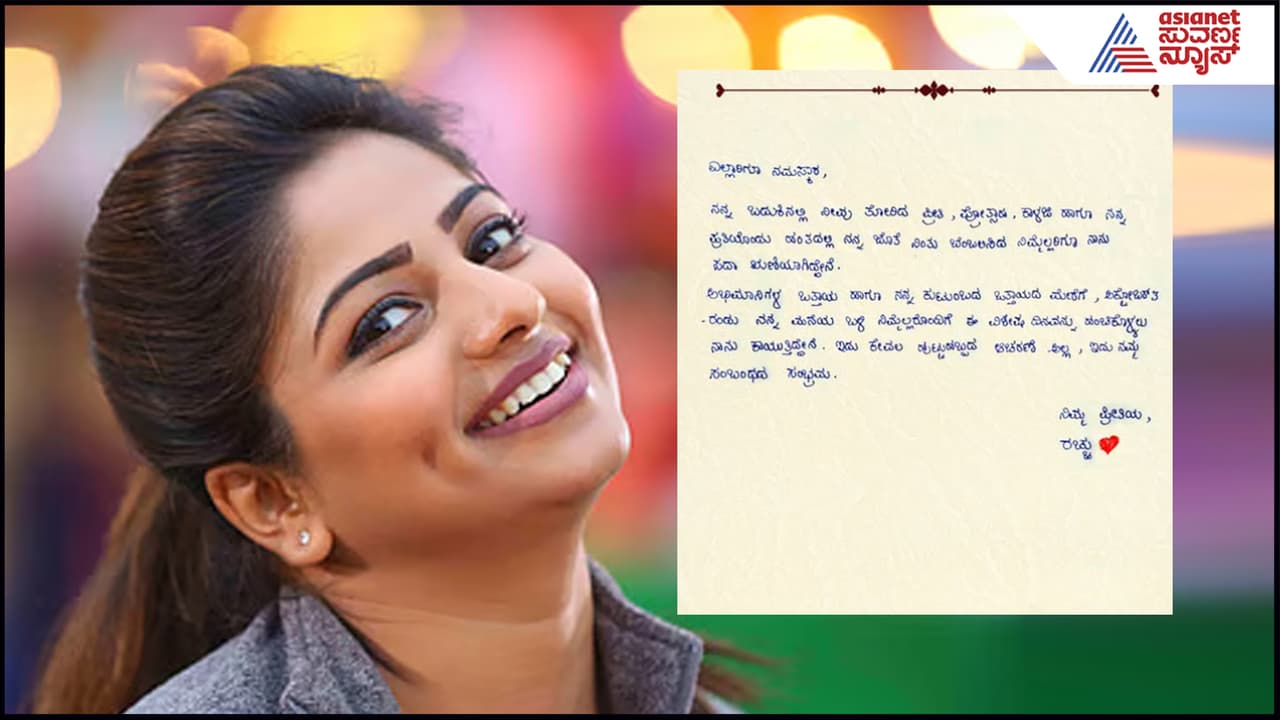 asianet
ಸುವರ್ಣ
ನ್ಯೂಸ್
ಎಲ್ಲಾರಿಗೂ ನಮಸ್ಕಾರ,
ನನ್ನ ಬದುಕಿನಲ್ಲಿ ನೀವು ತೋರಿದ ಪ್ರೀತಿ, ಪ್ರೋತ್ಸಾಹ, ಕಾಳಜಿ ಹಾಗೂ ನನ್ನ
ಪ್ರತಿಯೊಂದು ಹಂತದಲ್ಲಿ ನನ್ನ ಜೊತೆ ನಿಂತು ಬೆಂಬಲಿಸಿದ ನಿಮ್ಮೆಲ್ಲರಿಗೂ ನಾನು
ಸದಾ ಋಣಿಯಾಗಿದ್ದೇನೆ.
ಅಭಿಮಾನಿಗಳ ಒತ್ತಾಯ ಹಾಗೂ ನನ್ನ ಕುಟುಂಬದ ಒತ್ತಾಯದ ಮೇರೆಗೆ, ಅಕ್ಟೋಬರ್
-ರಂಡು ನನ್ನ ಮನೆಯ ಬಳಿ ನಿಮ್ಮೆಲ್ಲರೊಂದಿಗೆ ಈ ವಿಶೇಷ ದಿನವನ್ನು ಹಂಚಿಕೊಳ್ಳಲು
ನಾನು ಕಾಯುತ್ತಿದ್ದೇನೆ. ಇದು ಕೇವಲ ಹುಟ್ಟುಹಬ್ಬದ ಆಚರಣೆ ಅಲ್ಲ, ಇದು ನಮ್ಮ
ಸಂಬಂಧದ ಸಂಭ್ರಮ.
ನಿಮ್ಮ ಪ್ರೀತಿಯ,
ರಚ್ಚು